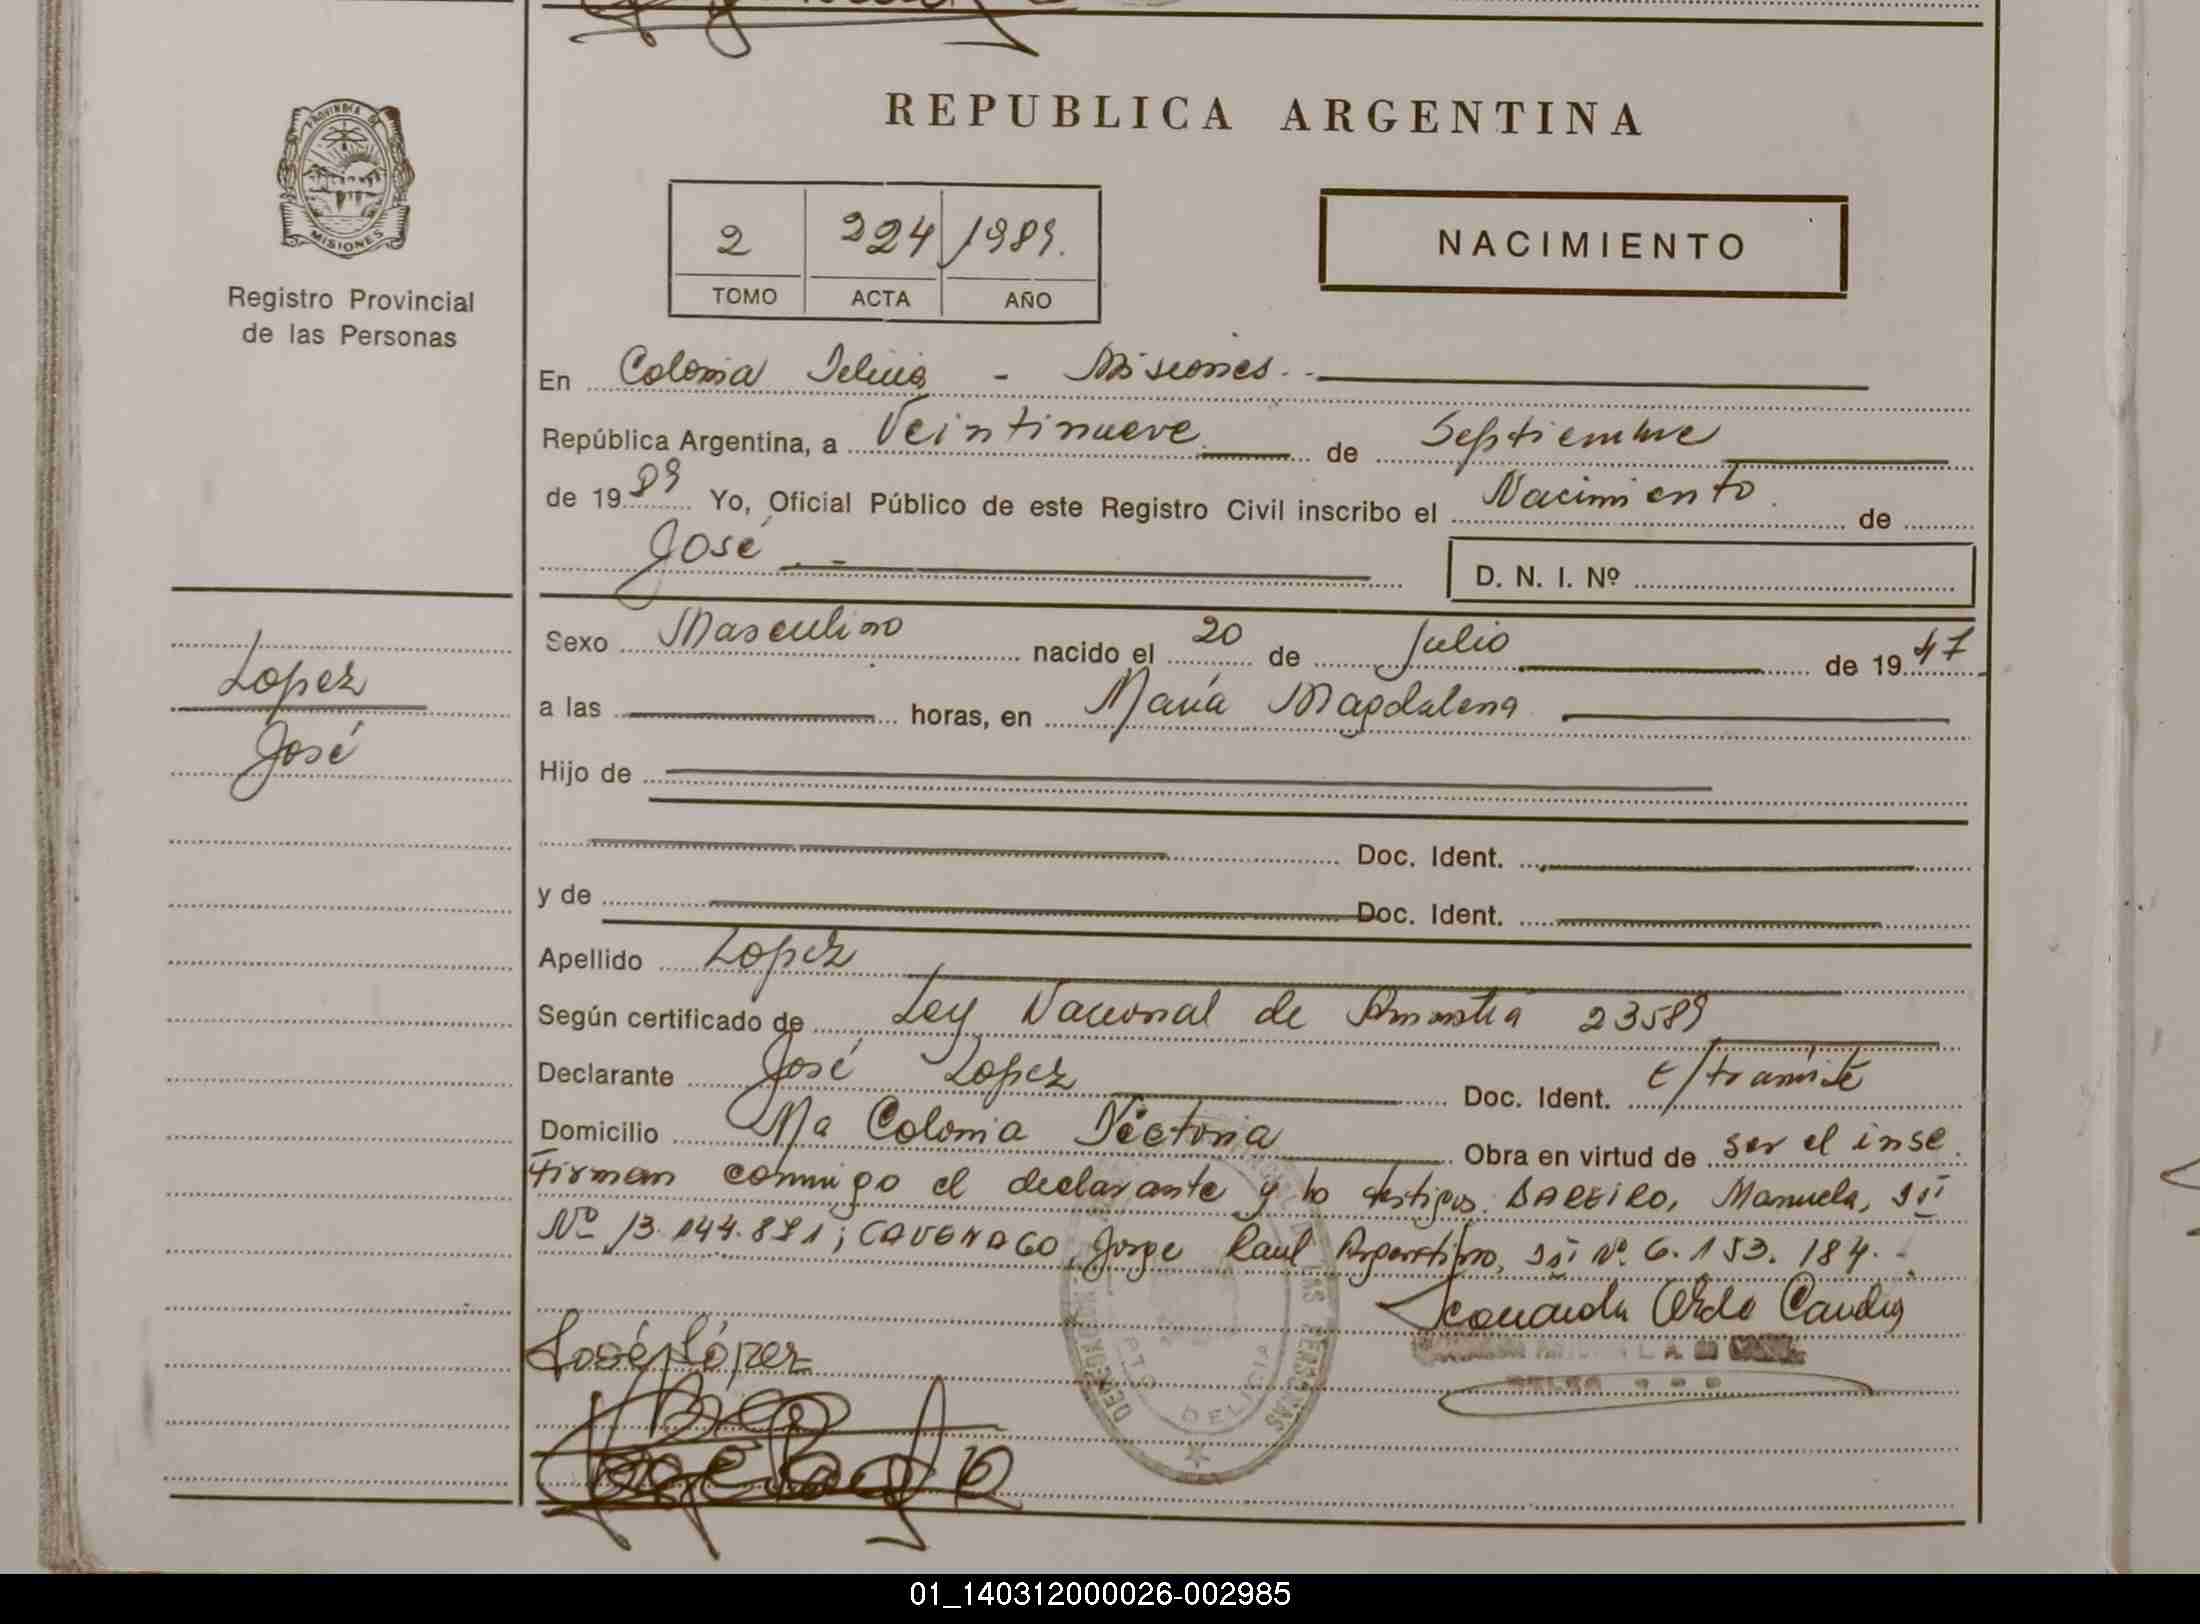 REPUBLICA ARGENTINA
PROVINCIA DE
MISIONES
Registro Provincial
de las Personas
2 224 1989.
TOMO ACTA AÑO
NACIMIENTO
En Colonia Delicia - Misiones.
República Argentina, a Veintinueve de Septiembre
de 1989 Yo, Oficial Público de este Registro Civil inscribo el Nacimiento de
José D. N. I. Nº
Lopez
José
Sexo Masculino nacido el 20 de Julio de 1947
a las horas, en María Magdalena
Hijo de
Doc. Ident.
y de Doc. Ident.
Apellido Lopez
Según certificado de Ley Nacional de Amnistía 23589
Declarante José Lopez Doc. Ident. t/trámite
Domicilio Na Colonia Victoria Obra en virtud de ser el insc.
Firman conmigo el declarante y lo testigos: BAREIRO, Manuela,
Nº 13.144.891; CAVENAGO, Jorge Raul Argentino, Nº 6.153.184.
José López
DELICIA